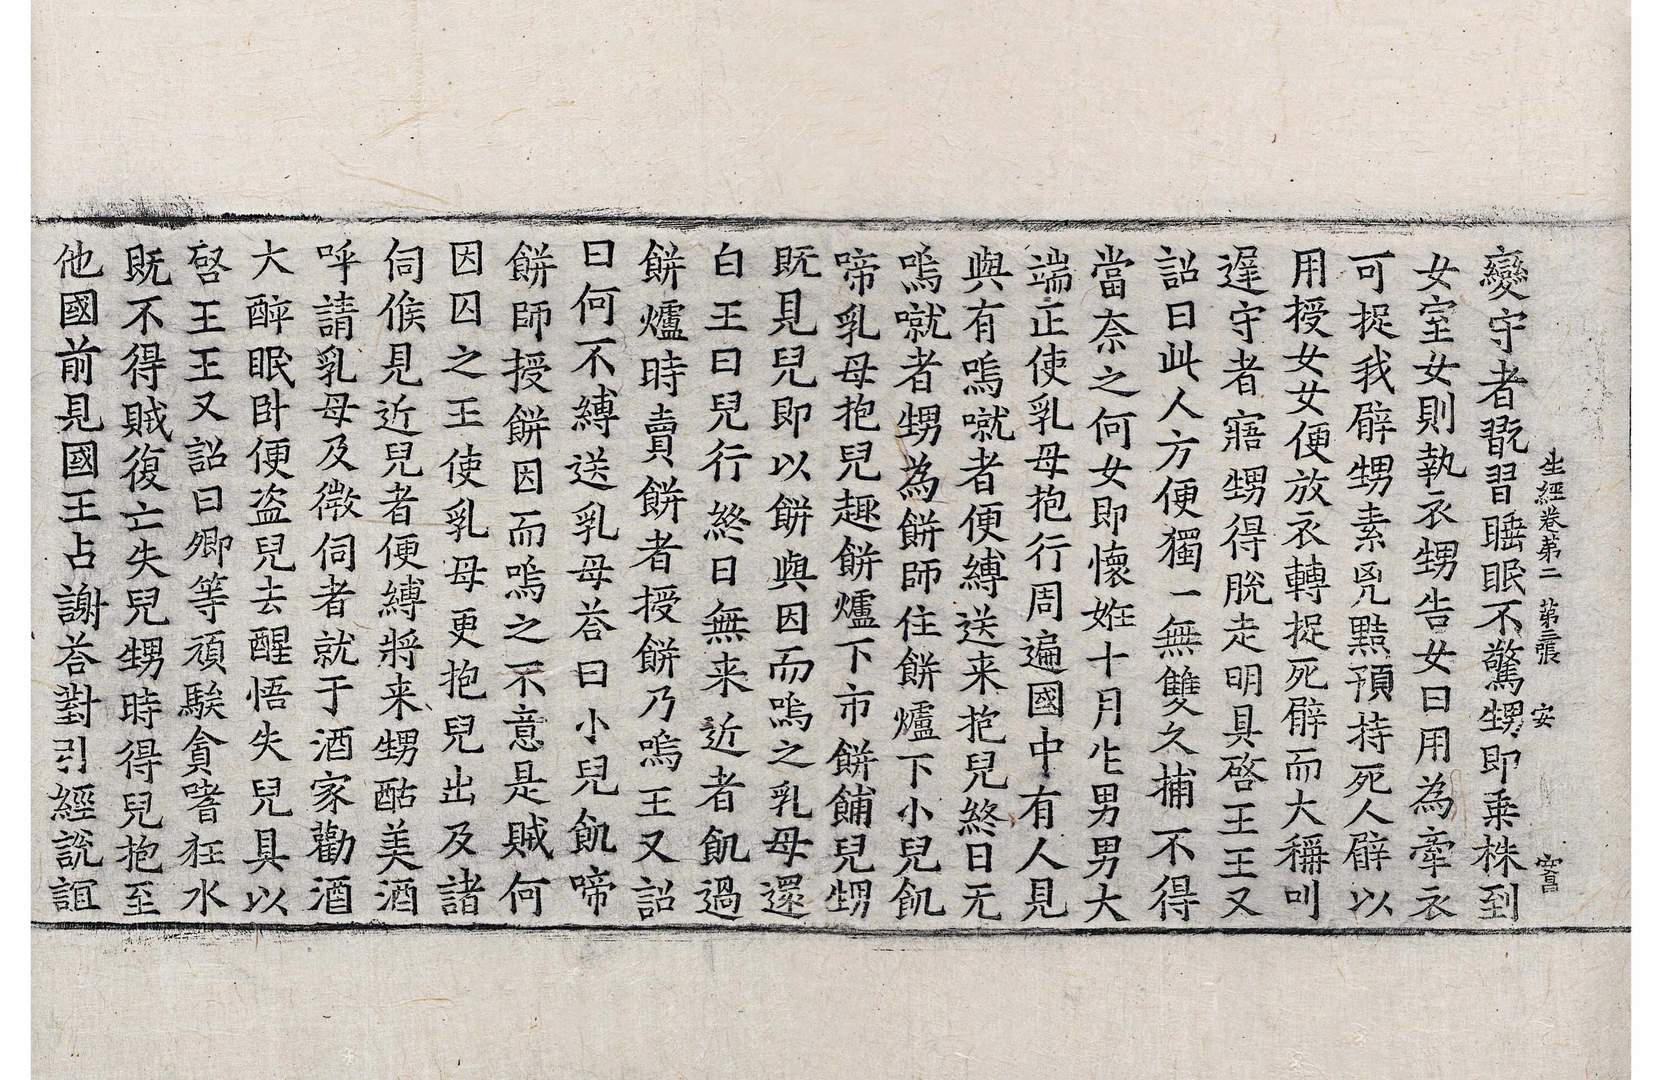 生經卷第二 第三張 安
變守者翫習睡眠不驚甥即乘株到
女室女則執衣甥告女曰用為牽衣
可捉我臂甥素兇黠預持死人臂以
用授女女便放衣轉捉死臂而大稱叫
遲守者寤甥得脫走明具啓王王又
詔曰此人方便獨一無雙久捕不得
當奈之何女即懷姙十月生男男大
端正使乳母抱行周遍國中有人見
與有嗚噈者便縛送来抱兒終日无
嗚噈者甥為餅師住餅爐下小兒飢
啼乳母抱兒趣餅爐下市餅餔兒甥
既見兒即以餅與因而嗚之乳母還
白王曰兒行終日無来近者飢過
餅爐時賣餅者授餅乃嗚王又詔
曰何不縛送乳母荅曰小兒飢啼
餅師授餅因而嗚之不意是賊何
因囚之王使乳母更抱兒出及諸
伺候見近兒者便縛將来甥酤美酒
呼請乳母及微伺者就于酒家勸酒
大醉眠卧便盗兒去醒悟失兒具以
啓王王又詔曰卿等頑騃貪嗜狂水
既不得賊復亡失兒甥時得兒抱至
他國前見國王占謝荅對引經說誼